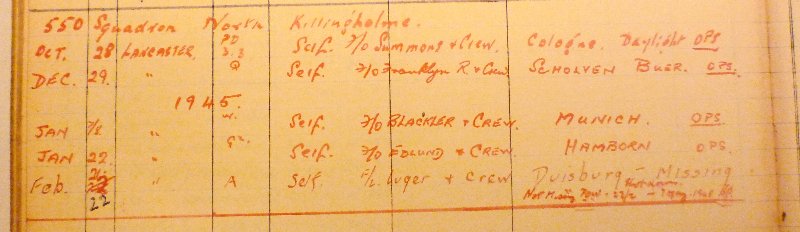 550 Squadron North Killingholme.
OCT. 28 LANCASTER, PD 3.3 Self. F/O Summons & Crew. Cologne. Daylight OPS
DEC. 29. " Q Self. F/O Franklyn R. & Crew. SCHOLVEN BUER. OPS.
1945.
JAN 7/8. " W. Self. F/O BLACKLER & CREW. MUNICH. OPS
JAN 22. " G². Self. F/O EDLUND & CREW. HAMBORN OPS.
Feb. 22 " A Self. F/L. Luger & Crew Duisburg - Missing
Not Missing